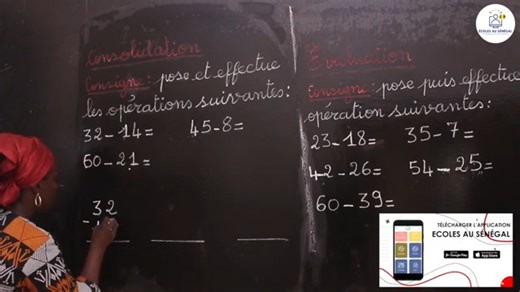 Consolidation
Consigne : pose et effectue
les opérations suivantes :
32-14=
45-8=
60-21=
32
-
Evaluation
Consigne : pose puis effectue
opération suivantes :
23-18=
35-7=
42-26=
54-25=
60-39=
ÉCOLES AU SÉNÉGAL
TÉLÉCHARGER L'APPLICATION
ECOLES AU SÉNÉGAL
Google Play
App Store